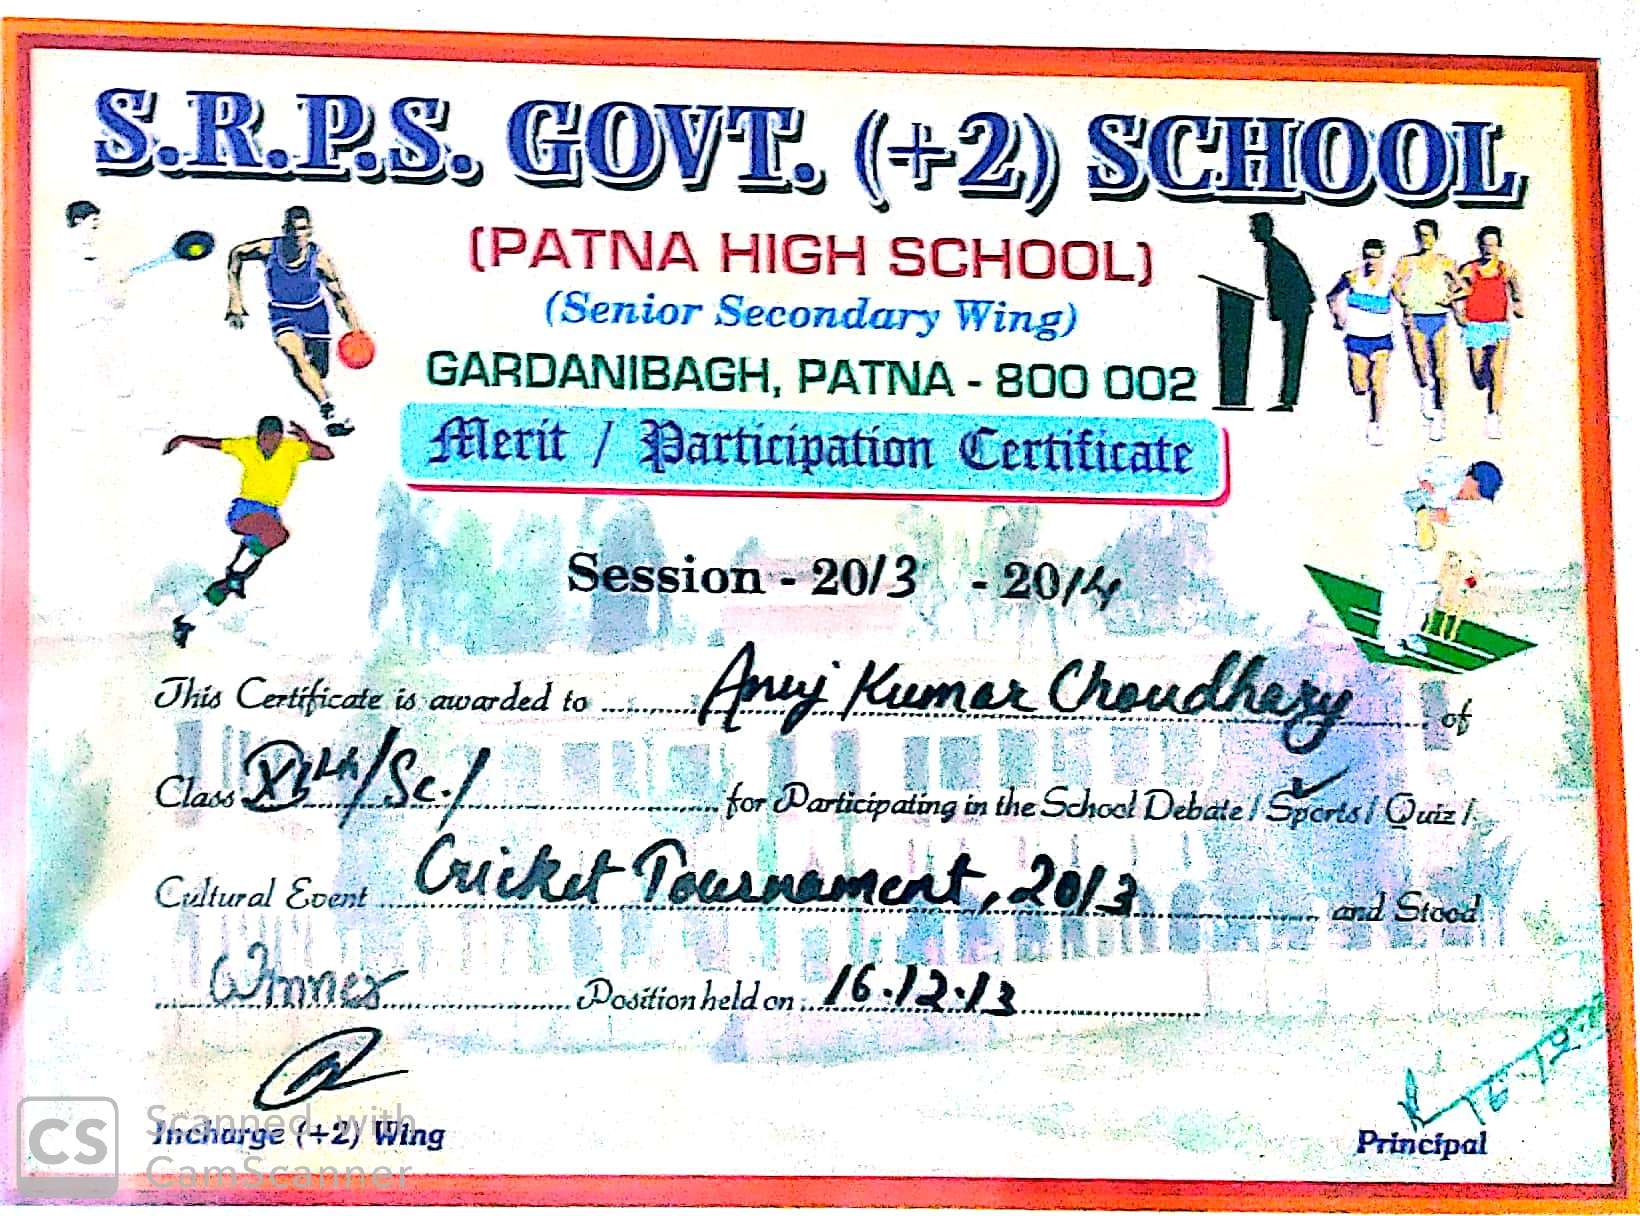 S.R.P.S. GOVT. (+2) SCHOOL
(PATNA HIGH SCHOOL)
(Senior Secondary Wing)
GARDANIBAGH, PATNA - 800 002
Merit / Participation Certificate
Session - 20/3 - 20/4
This Certificate is awarded to Anuj Kumar Choudhary of
Class XIth/Sc./ for Participating in the School Debate / Sports / Quiz /
Cultural Event Cricket Tournament, 2013 and Stood
Winner Position held on 16.12.13
Incharge (+2) Wing
Principal
CS Scanned with
CamScanner